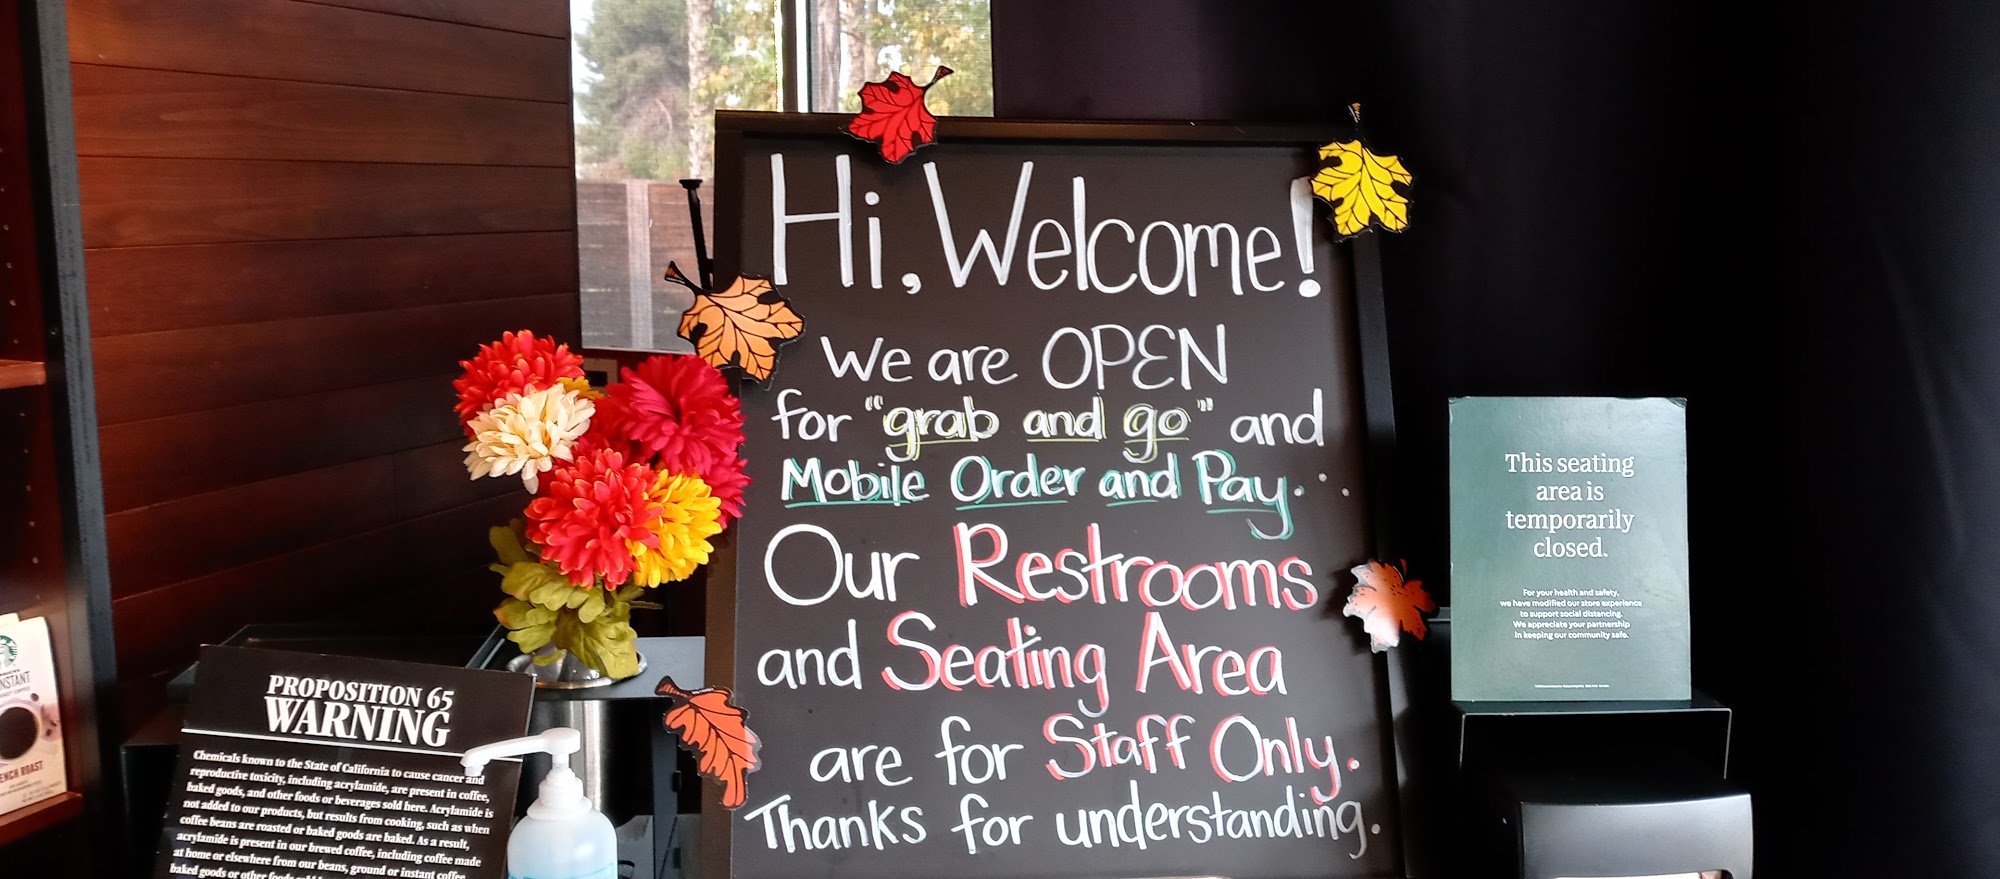 Hi, Welcome!
We are OPEN
for "grab and go" and
Mobile Order and Pay...
Our Restrooms
and Seating Area
are for Staff Only.
Thanks for understanding.
This seating
area is
temporarily
closed.
For your health and safety,
we have modified our store experience
to support social distancing.
We appreciate your partnership
in keeping our community safe.
PROPOSITION 65
WARNING
Chemicals known to the State of California to cause cancer and
reproductive toxicity, including acrylamide, are present in coffee,
baked goods, and other foods or beverages sold here. Acrylamide is
not added to our products, but results from cooking, such as when
coffee beans are roasted or baked goods are baked. As a result,
acrylamide is present in our brewed coffee, including coffee made
at home or elsewhere from our beans, ground or instant coffee,
baked goods or other foods
NSTANT
ENCH ROAST